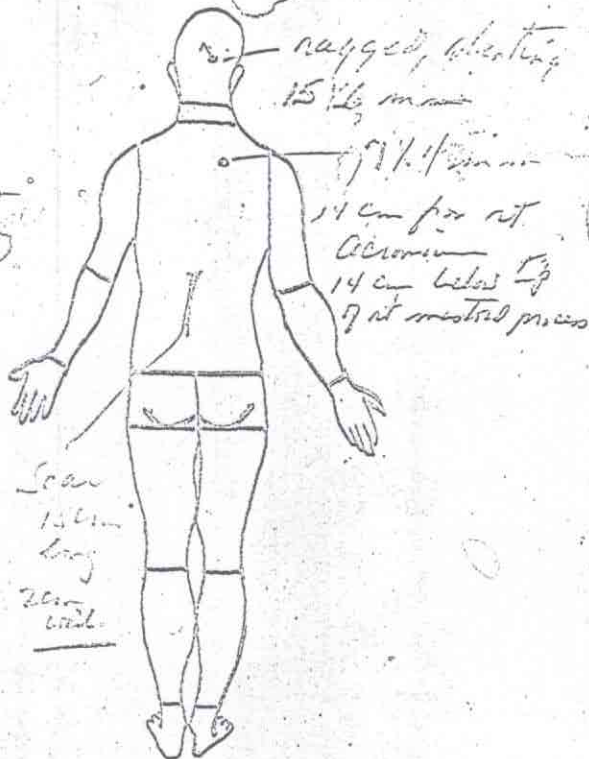 ragged, slanting
15 X 6 mm
7 X 4 mm
14 cm from rt
acromion
14 cm below tip
of rt mastoid process
Scar
long
2cm